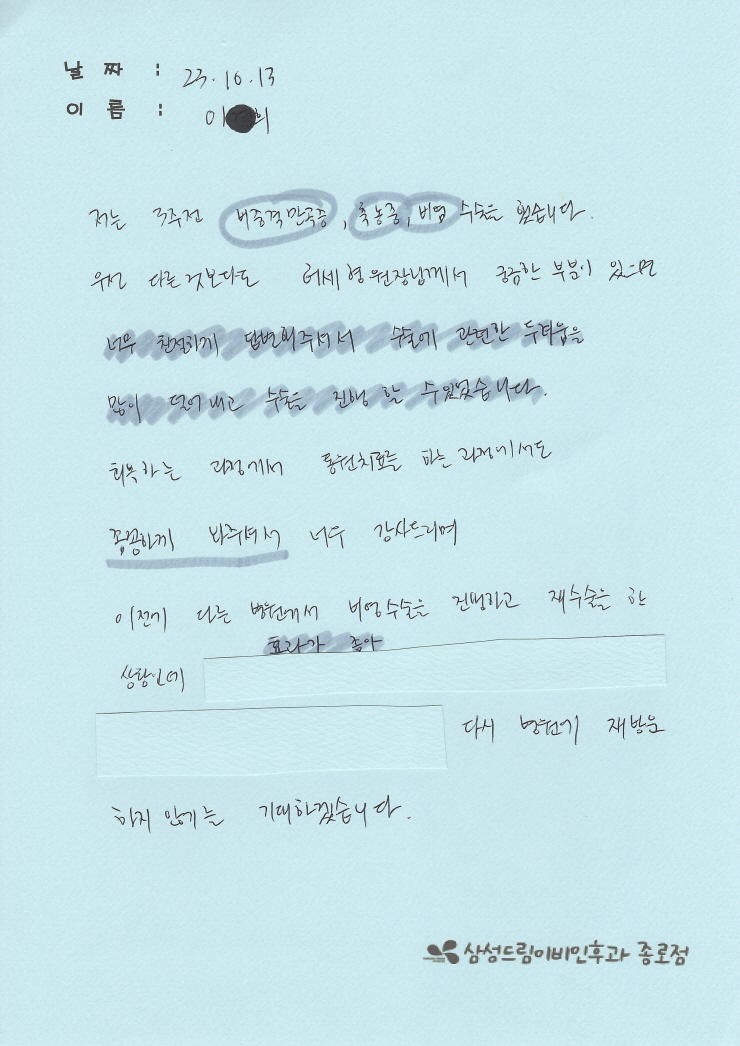 날 짜 : 23.10.13
이 름 : 이 희
저는 3주전 비중격만곡증, 축농증, 비염 수술을 했습니다.
우선 다른것보다도 허세형원장님께서 궁금한 부분이 있으면
너무 친절하게 답변해주셔서 수술에 관련한 두려움을
많이 덜어내고 수술을 진행 할 수있었습니다.
회복하는 과정에서 통원치료를 하는 과정에서도
꼼꼼하게 봐주셔서 너무 감사드리며
이전에 다른 병원에서 비염수술을 진행하고 재수술을 한
효과가 좋아
상황인데
다시 병원에 재방문
하지 않기를 기대하겠습니다.
삼성드림이비인후과 종로점